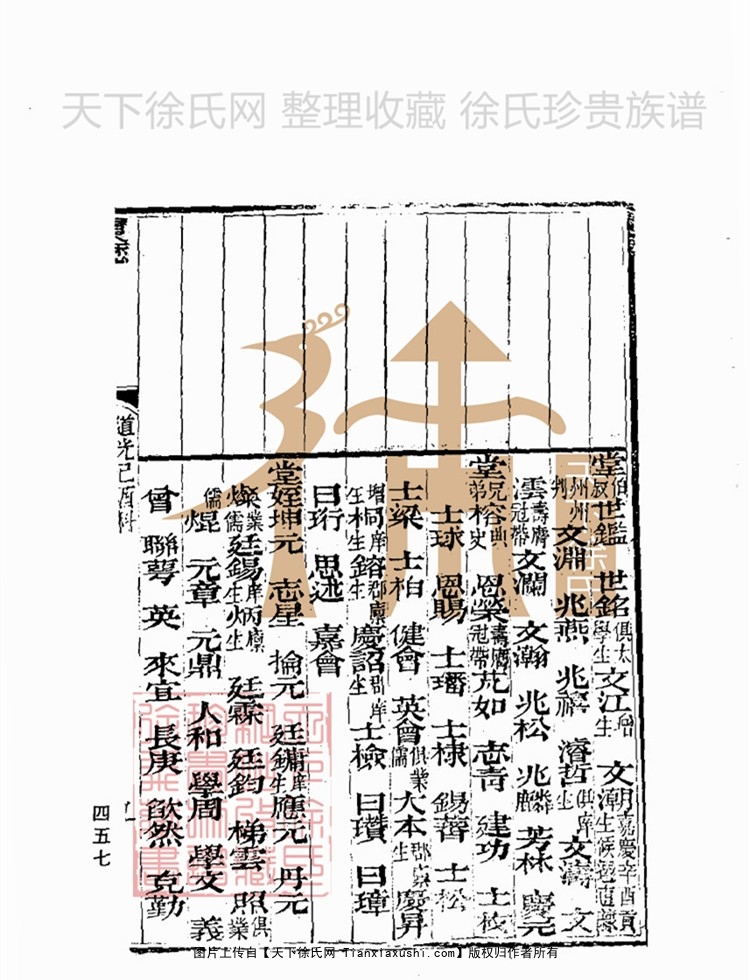 天下徐氏网 整理收藏 徐氏珍贵族谱
堂伯叔世鑑 世銘俱太學生文江增生 文潮嘉慶辛酉貢生候選直隸
州州判文淵 兆燕 兆 濬哲俱庠生文濤 文
雲壽膺冠帶文瀾 文瀚 兆松 兆麟 芳林 慶元
堂兄弟容 榕典史 恩榮壽膺冠帶芃如 志青 建功 士
士球 恩賜 士璠 士棣 錫 士松
士梁 士柏 健會 英會俱業儒大本郡庠生慶昇
增生桐庠生鎔郡廪生慶詔郡庠生士檢 曰瓚 曰璋
曰珩 思述 嘉會
堂姪坤元 志星 掄元 廷鏞庠生應元 丹元
業儒廷錫庠生炳廪生 廷霖 廷鈞 梯雲 照俱業
儒焜 元章 元鼎 人和 學周 學文 義
會 聯萼 英 來宜 長庚 歆然 克勤
道光己酉科
四五七
图片上传自【天下徐氏网 Tianxiaxushi.com】版权归作者所有